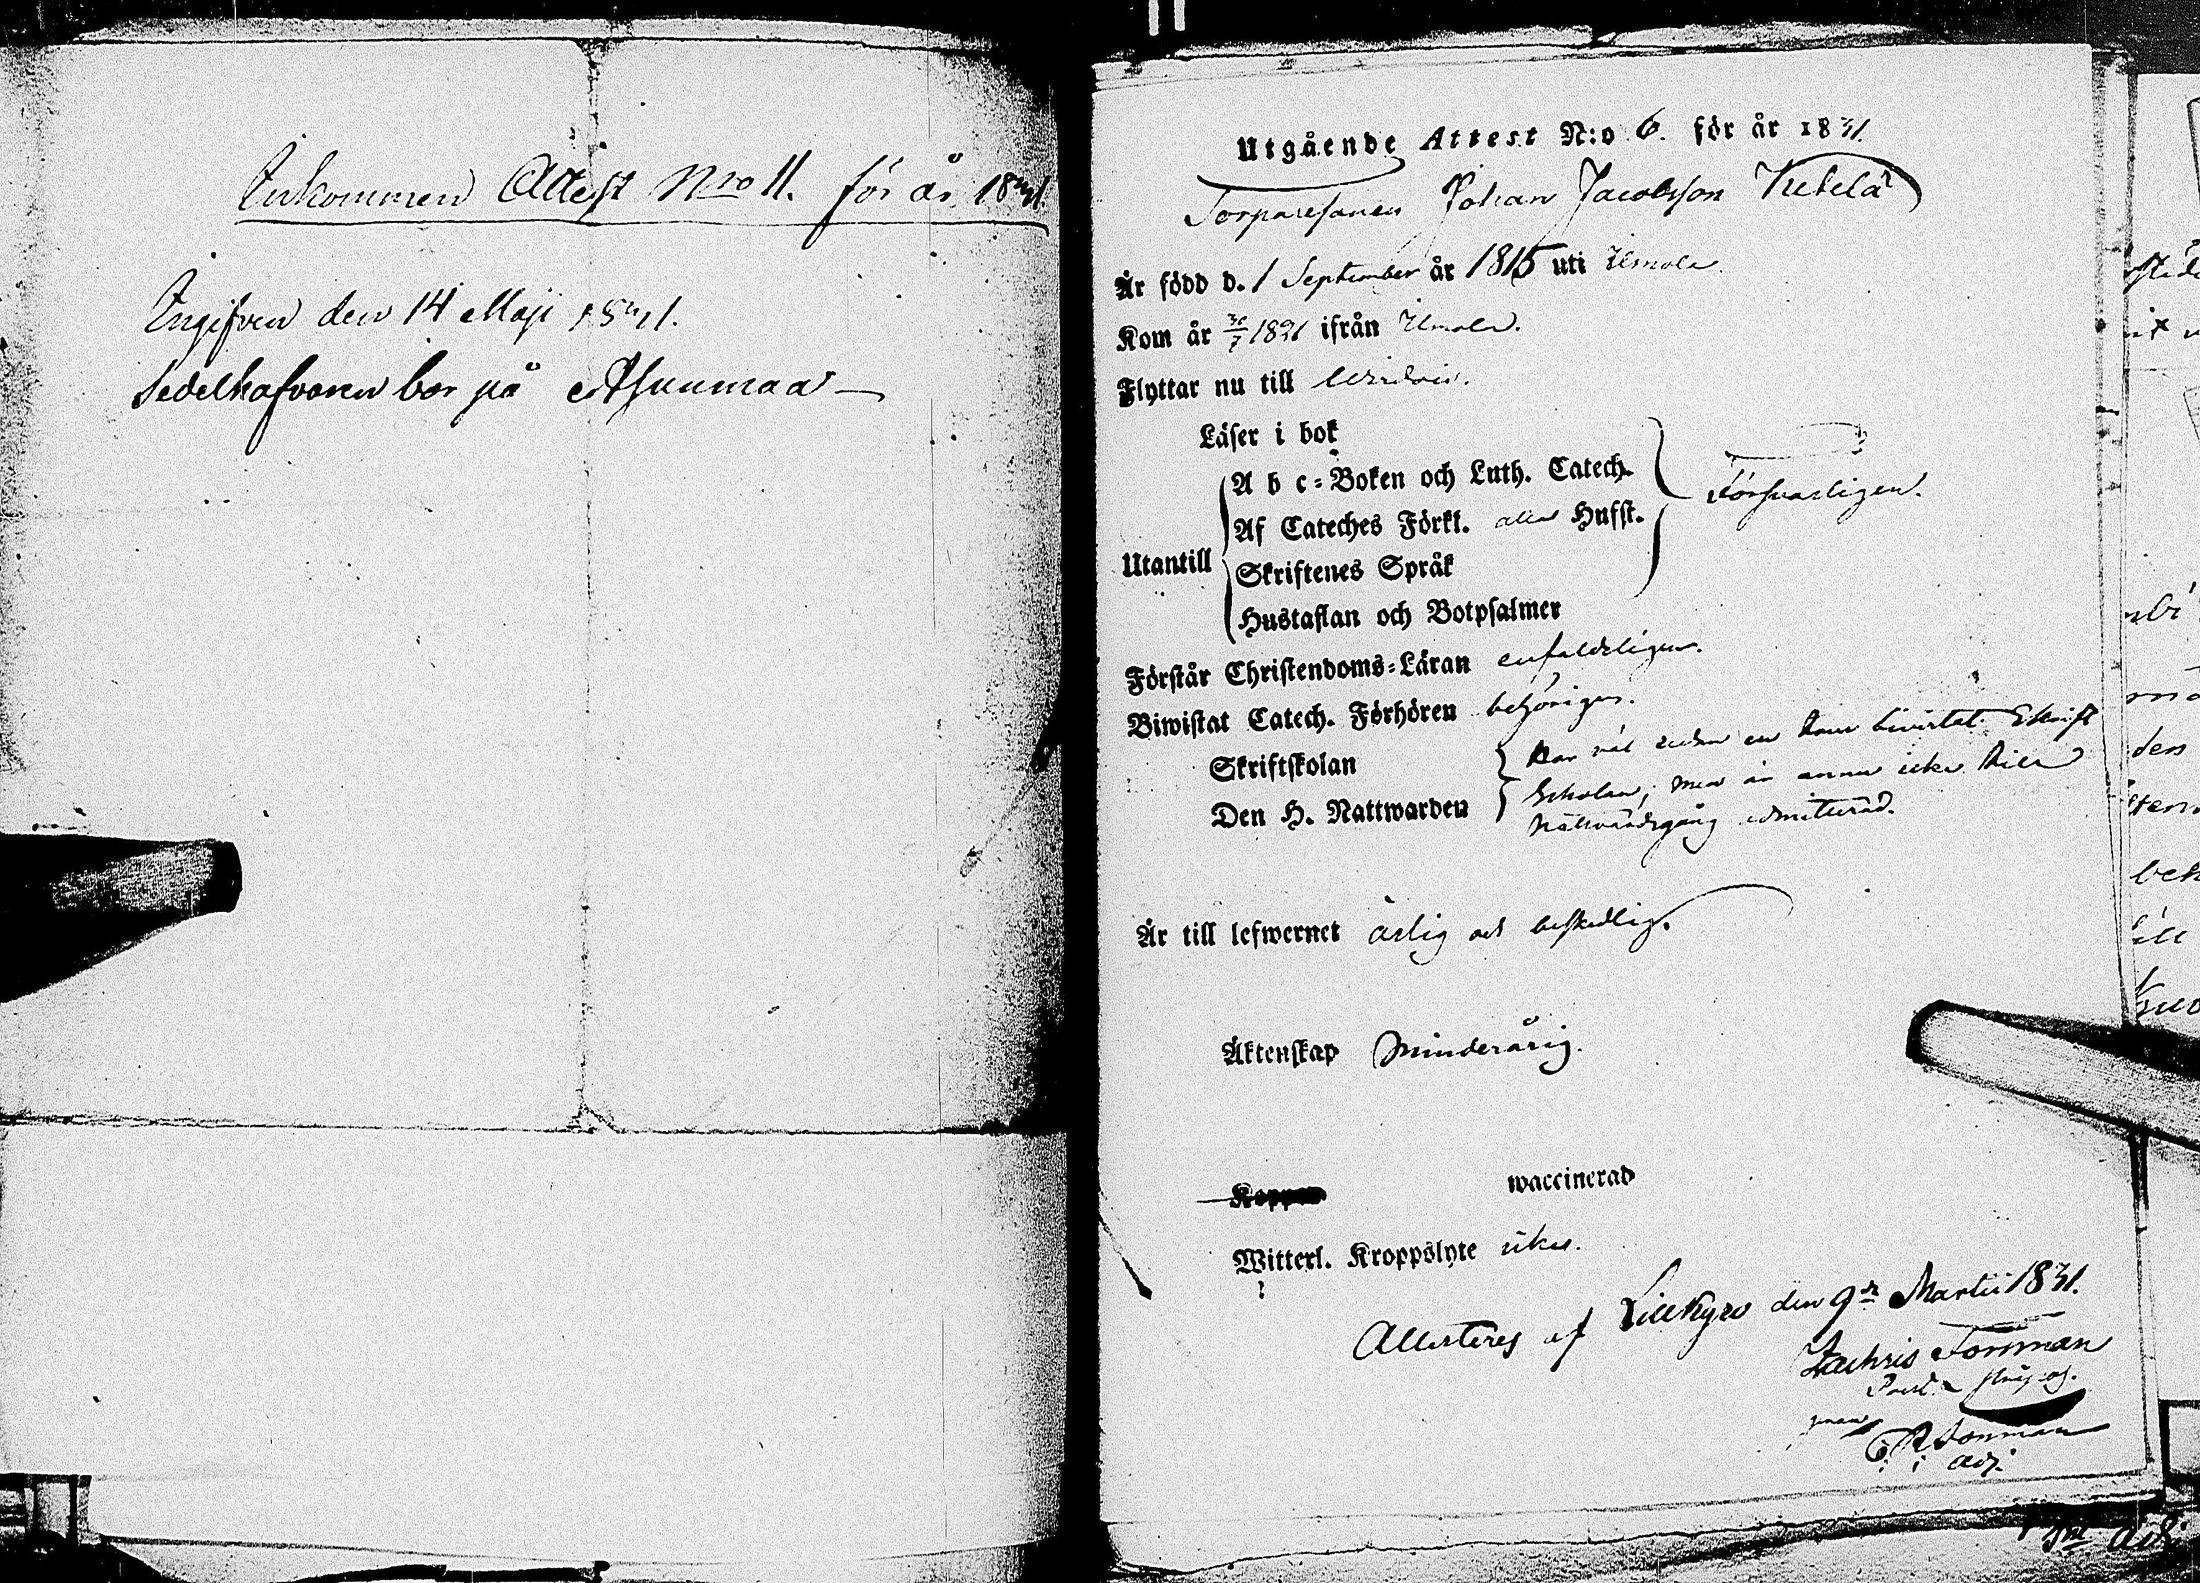 Inkommen Attest Nro 11. för år 1831.
Ingifven den 14 Maji 1831.
Sedelhafvaren bor på Asunmaa
Utgående Attest N:o 6. för år 1831.
Torparesonen Johan Jacobsson Ketelä
Är född d. 1 September år 1815 uti Ilmola.
Kom år 1821 ifrån Ilmola.
Flyttar nu till Wirdois.
Läser i bok
A b c-Boken och Luth. Catech.
Försvarligen.
Af Cateches Förkl. alla Husst.
Utantill
Skriftenes Språk
Hustaflan och Botpsalmer
Förstår Christendoms-Läran enfaldeligen.
Biwistat Catech. Förhören behörigen.
Skriftskolan
Har väl redan en bivistat Skrift
Den H. Nattwarden
Scholan, men är annu icke till
Nattvardsgång admitterad.
Är till lefwernet ärlig och beskedlig.
Äktenskap Minderårig.
Koppor waccinerad
Witterl. Kroppslyte icke.
Attesteres af Lillkyro den 9de Martii 1831.
Zachris Forsman
genom
Adj.